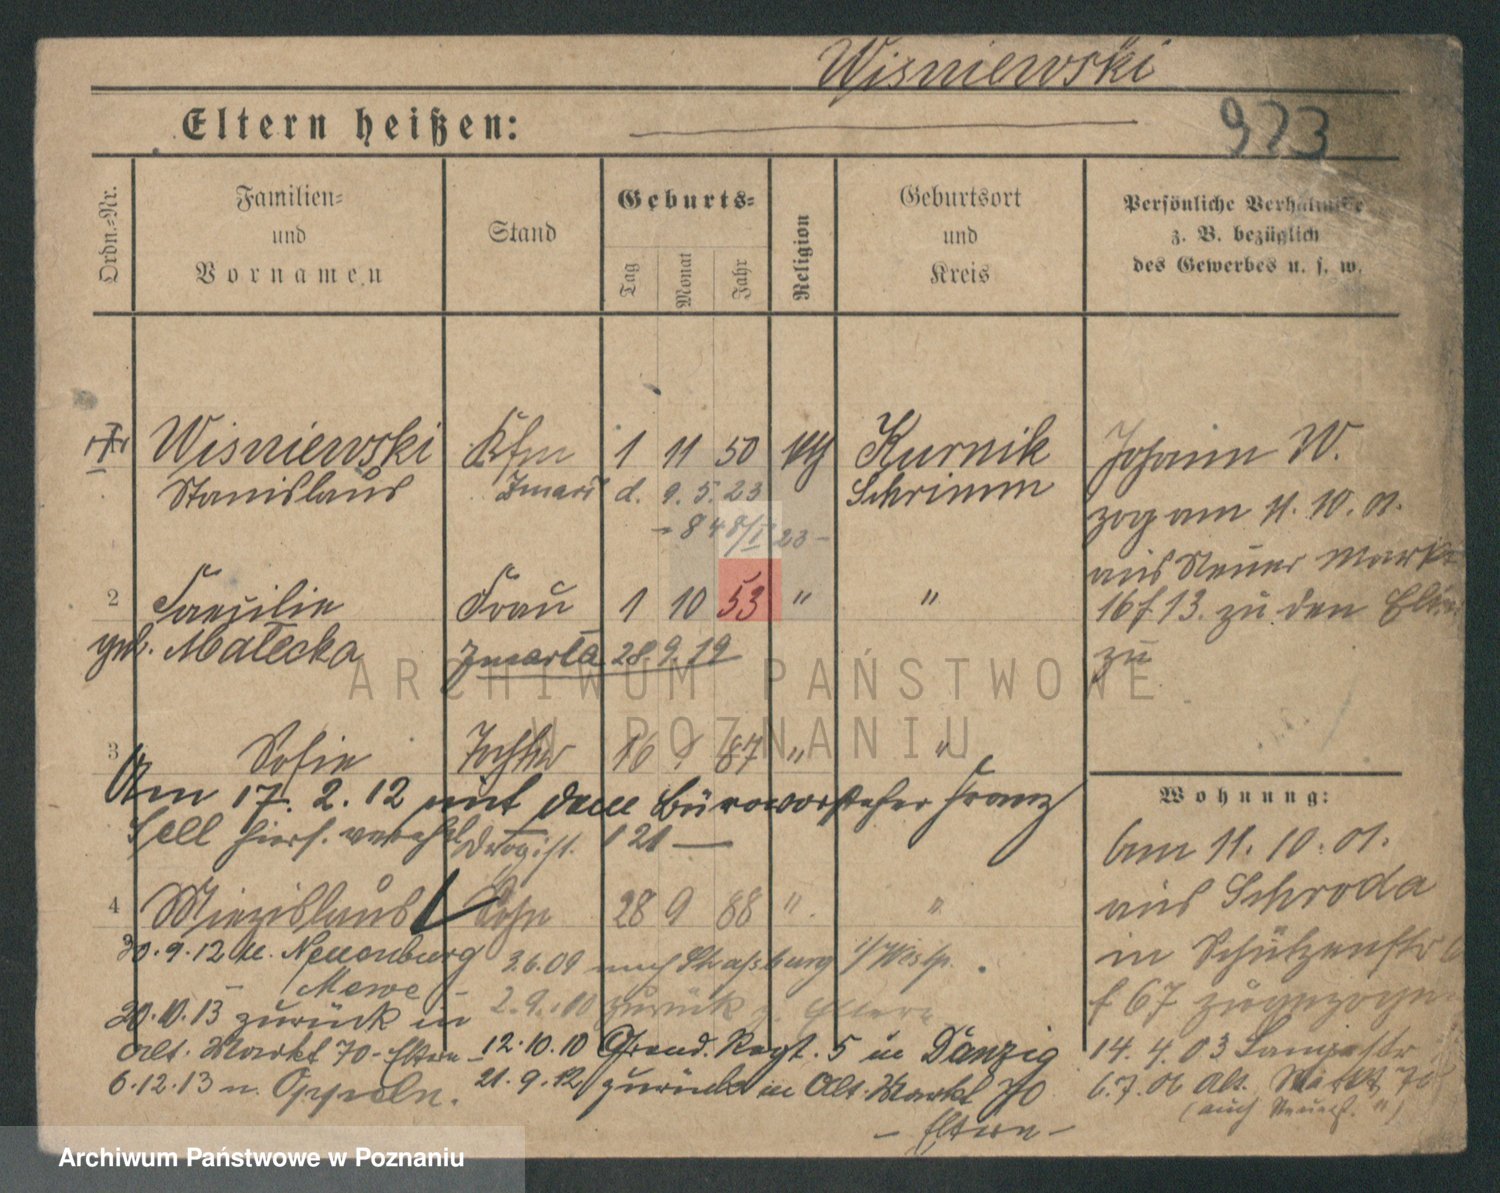 Wisniewski
Eltern heißen:
923
Ordn.-Nr.
Familien-
und
Vornamen
Stand
Geburts-
Tag
Monat
Jahr
Religion
Geburtsort
und
Kreis
Persönliche Verhältnisse
z. B. bezüglich
des Gewerbes u. s. w.
Wisniewski Kfm 1 11 50 Kurnik
Stanislaus Zmarł d. 9. 5. 23 Schrimm
23 -
2 Frau 1 10 53 " "
geb. Małecka Zmarła 28.9.19
3 Sofie Tochter 16 87 " "
Am 17. 2. 12 mit dem Bürovorsteher Franz
Sell hiers. verehel.
Drogist.
4 Miezislaus Sohn 28 9 88 " "
30.9.12 n. Neuenburg
- Mewe -
nach Strassburg i/Westp.
2.9.10 zurück z. Eltern
20.10.13 zurück in
Alt. Markt 70 - Eltern -
6.12.13 n. Oppeln.
12.10.10 Grend. Regt. 5 in Danzig
21.9.12 zurück in Alt. Markt 70
- Eltern -
Johann W.
zog am 11. 10. 01.
aus Neuer Markt
16 f 13. zu den Eltern
zu
Wohnung:
am 11. 10. 01.
aus Schroda
in Schützenstr
f 67 zugezogen
14. 4. 03 Langestr
6.7.06 Alt. Markt 70
ARCHIWUM PAŃSTWOWE
W POZNANIU
Archiwum Państwowe w Poznaniu